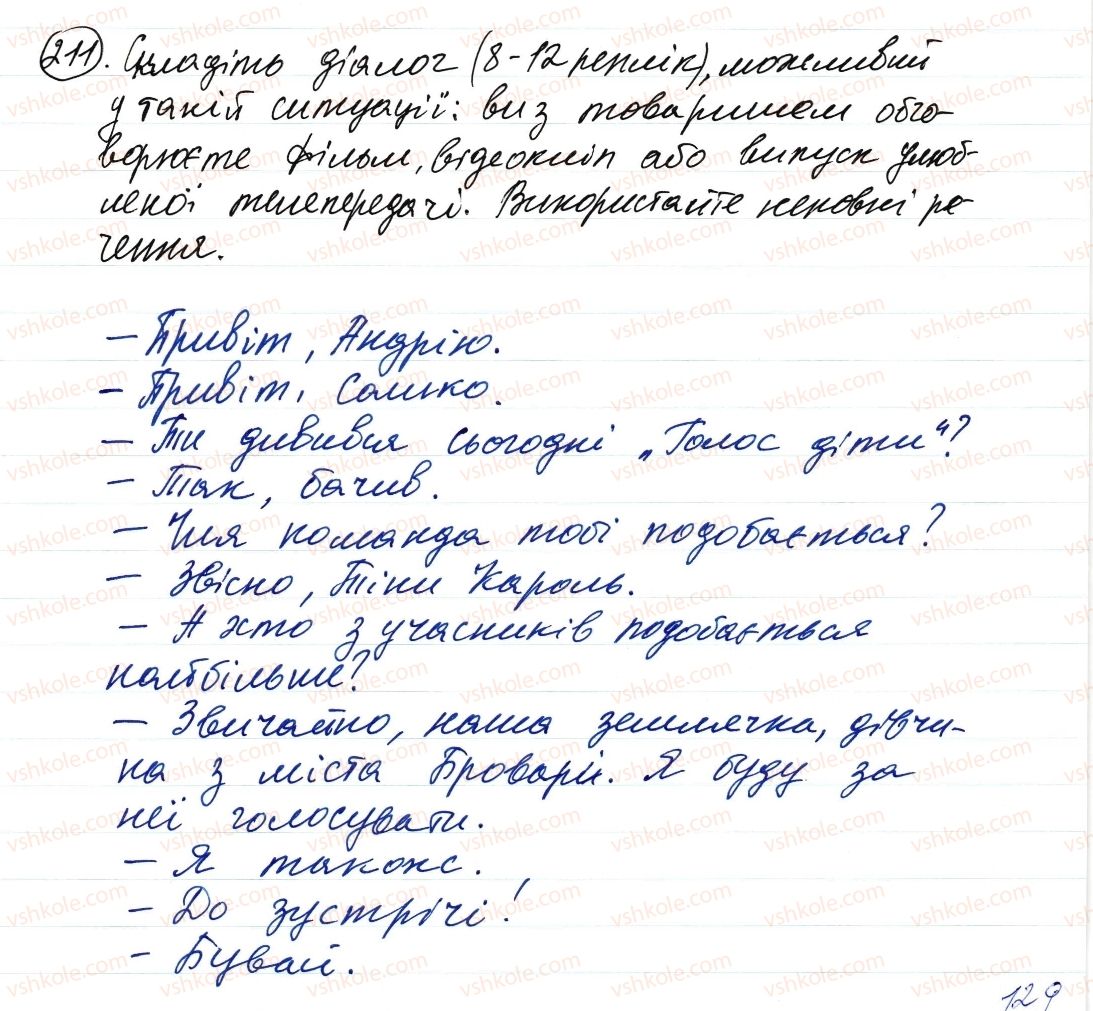 211. Складіть діалог (8-12 реплік), можливий
у такій ситуації: ви з товаришем обго-
ворюєте фільм, відеокліп або випуск улюб-
леної телепередачі. Використайте неповні ре-
чення.
- Привіт, Андрію.
- Привіт, Сашко.
- Ти дивився сьогодні „Голос діти"?
- Так, бачив.
- Чия команда тобі подобається?
- Звісно, Тіни Кароль.
- А хто з учасників подобається
найбільше?
- Звичайно, наша землячка, дівчи-
на з міста Бровари. Я буду за
неї голосувати.
- Я також.
- До зустрічі!
- Бувай.
129